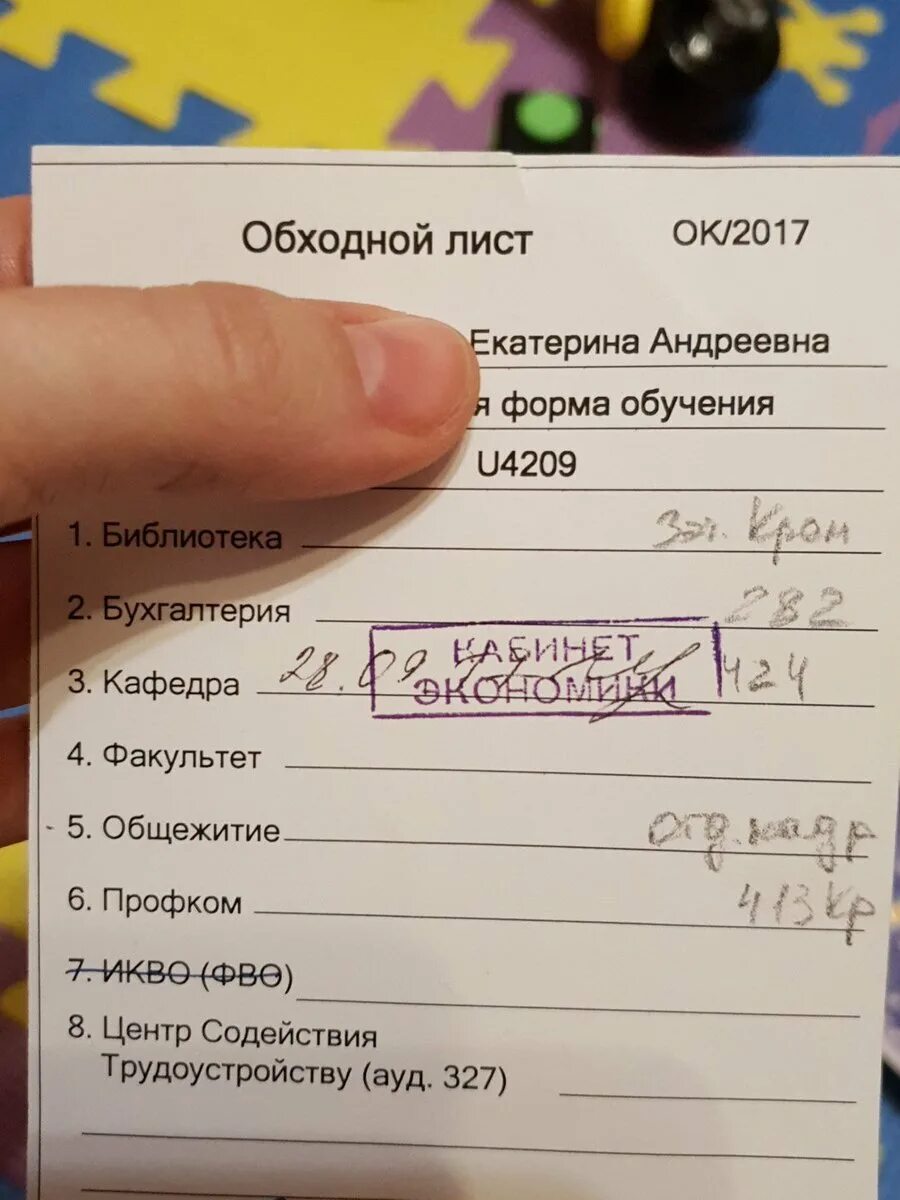 Обходной лист ОК/2017
Екатерина Андреевна
я форма обучения
U4209
1. Библиотека Эт. Кром
2. Бухгалтерия 282
КАБИНЕТ
3. Кафедра 28.09 424
ЭКОНОМИКИ
4. Факультет
- 5. Общежитие отд. кадр
6. Профком 413 Кр
7. ИКВО (ФВО)
8. Центр Содействия
Трудоустройству (ауд. 327)